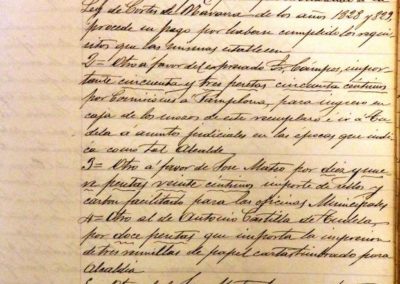 Ley de Cortes de Navarra de los años 1828 y 829,
procede su pago por haber cumplido los requi-
sitos que las mismas establecen
2= Otro a favor del espresado Sr Campos, impor-
tante cincuenta y tres pesetas cincuenta centimos
por comisiones a Pamplona, para ingreso en
caja de los mozos de este reemplazo é ir á Tu-
dela a asuntos judiciales en las épocas que indi-
ca como tal Alcalde
3= Otro á favor de Jose Mateo por diez y nue-
ve pesetas veinte centimos importe de sellos y
carbon facilitado para las oficinas Municipales
4= Otro al de Antonio Castilla de Tudela
por doce pesetas que importa la impresion
de tres resmillas de papel cartas timbrado para
Alcaldia